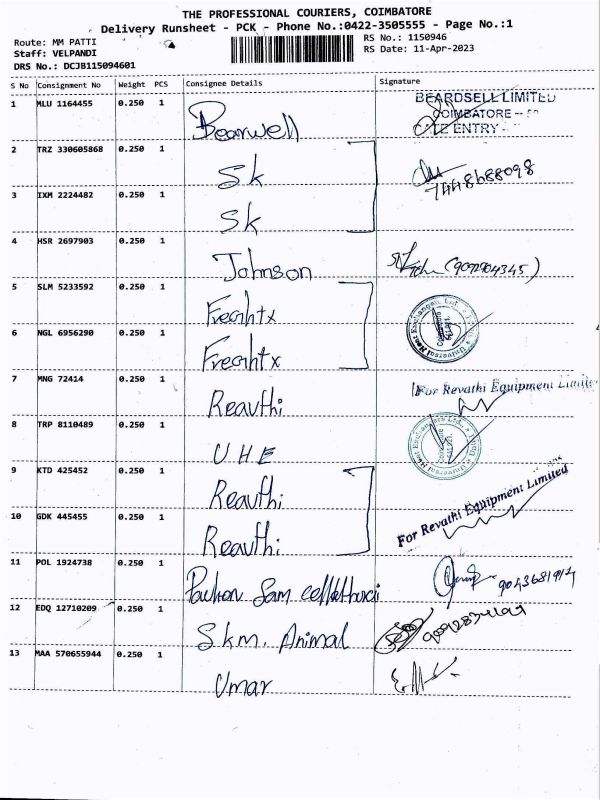 THE PROFESSIONAL COURIERS, COIMBATORE
Delivery Runsheet - PCK - Phone No.:0422-3505555 - Page No.:1
Route: MM PATTI
RS No.: 1150946
Staff: VELPANDI
RS Date: 11-Apr-2023
DRS No.: DCJB115094601
S No Consignment No Weight PCS Consignee Details Signature
1 MLU 1164455 0.250 1 Bearwell
BEARDSELL LIMITED
COIMBATORE
ENTRY
2 TRZ 330605868 0.250 1 Sk
7448688098
3 IXM 2224482 0.250 1 Sk
4 HSR 2697903 0.250 1 Johnson (9092904345)
5 SLM 5233592 0.250 1 Freahtx
6 NGL 6956290 0.250 1 Freahtx
7 MNG 72414 0.250 1 Reavthi For Revathi Equipment Limite
8 TRP 8110489 0.250 1 UHE
9 KTD 425452 0.250 1 Reavthi
10 GDK 445455 0.250 1 Reavthi For Revathi Equipment Limited
11 POL 1924738 0.250 1 Sam
12 EDQ 12710209 0.250 1 S.k.m. Animal
13 MAA 570655944 0.250 1 Umar